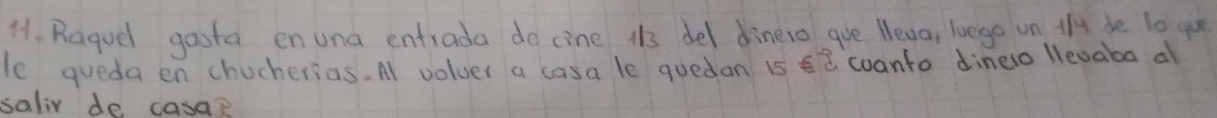 11. Raquel gasta en una entrada de cine 1/3 del dinero que lleva, luego un 1/4 de lo que
le queda en chucherias. Al volver a casa le quedan 15 € ¿ cuanto dinero llevaba al
salir de casa?